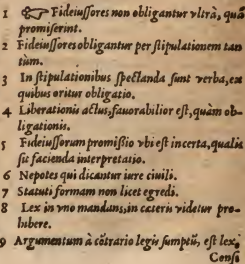 1 Fideiuſſores non obligantur vltrà, quã
promiſerint.
2 Fideiuſſores obligantur per ſtipulationem tan
tùm.
3 In ſtipulationibus ſpectanda ſunt verba, ex
quibus oritur obligatio.
4 Liberationis actus, fauorabilior eſt, quàm ob-
ligationis.
5 Fideiuſſorum promißio vbi eſt incerta, qualis
ſit facienda interpretatio.
6 Nepotes qui dicantur iure ciuili.
7 Statuti formam non licet egredi.
8 Lex in vno mandans, in cæteris videtur pro-
hibere.
9 Argumentum à cõtrario legis ſumptũ, eſt lex,
Conſi